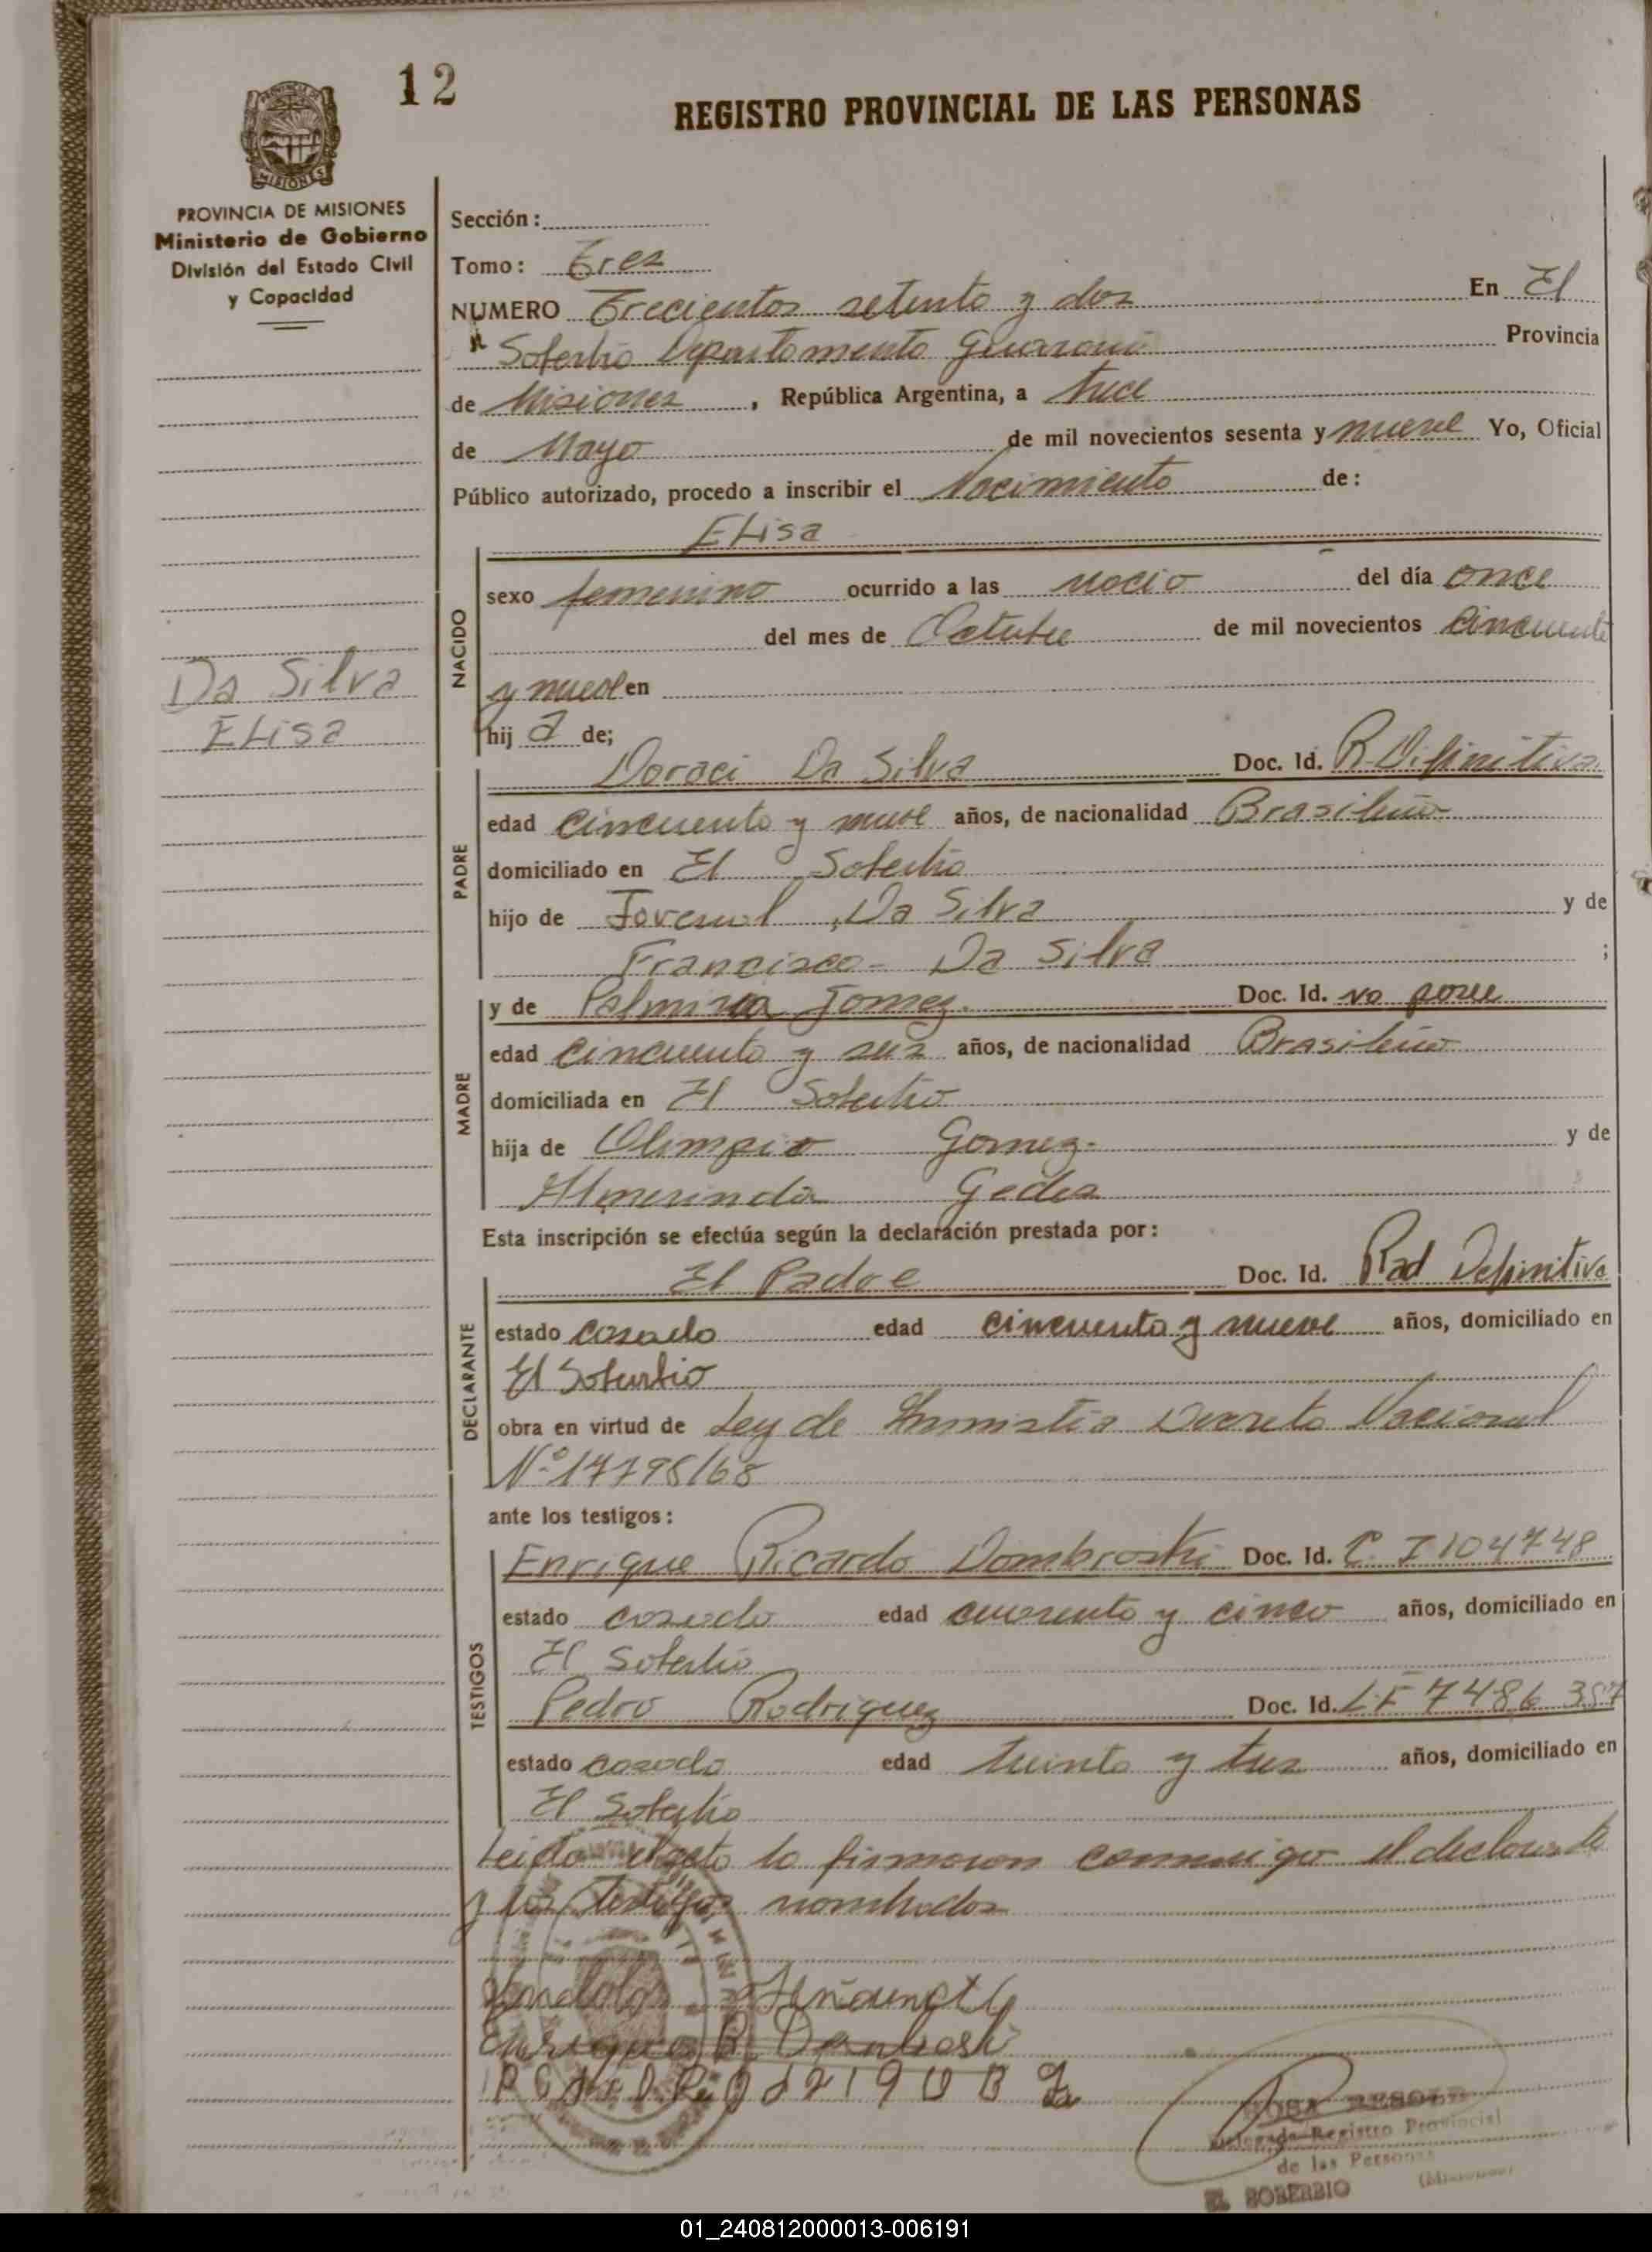 12
REGISTRO PROVINCIAL DE LAS PERSONAS
MISIONES
PROVINCIA DE MISIONES
Ministerio de Gobierno
División del Estado Civil
y Capacidad
Sección:
Tomo: Tres
NUMERO Trecientos setenta y dos En El
Soberbio Departamento Guarani Provincia
de Misiones, República Argentina, a trece
de Mayo de mil novecientos sesenta y nueve Yo, Oficial
Público autorizado, procedo a inscribir el Nacimiento de:
ELisa
NACIDO
sexo femenino ocurrido a las nacio del día once
del mes de Octubre de mil novecientos cincuenta
y nueve en
hij a de;
Da Silva
ELisa
PADRE
Doraci Da Silva Doc. Id. R. Difinitiva
edad cincuenta y nueve años, de nacionalidad Brasileño
domiciliado en El Soberbio
hijo de Jovenal Da Silva y de
Francisca - Da Silva ;
MADRE
y de Palmira Gomez. Doc. Id. no posee
edad cincuenta y seis años, de nacionalidad Brasileño
domiciliada en El Soberbio
hija de Olimpio Gomez. y de
Almerinda
Esta inscripción se efectúa según la declaración prestada por:
DECLARANTE
El Padre Doc. Id. Rad Definitiva
estado casado edad cincuenta y nueve años, domiciliado en
El Soberbio
obra en virtud de Ley de Amnistia Decreto Nacional
Nº 17795/68
ante los testigos:
TESTIGOS
Enrique Ricardo Dombroski Doc. Id. C. I 104748
estado casado edad cuarenta y cinco años, domiciliado en
El Soberbio
Pedro Rodriguez Doc. Id. L.E 7486 357
estado casado edad treinta y tres años, domiciliado en
El Soberbio
Leida el acto lo firmaron conmigo el declarante
y los testigos nombrados
Enrique R. Dombroski
ROSA
Delegada Registro Provincial
de las Personas
EL SOBERBIO (Misiones)
01_240812000013-006191